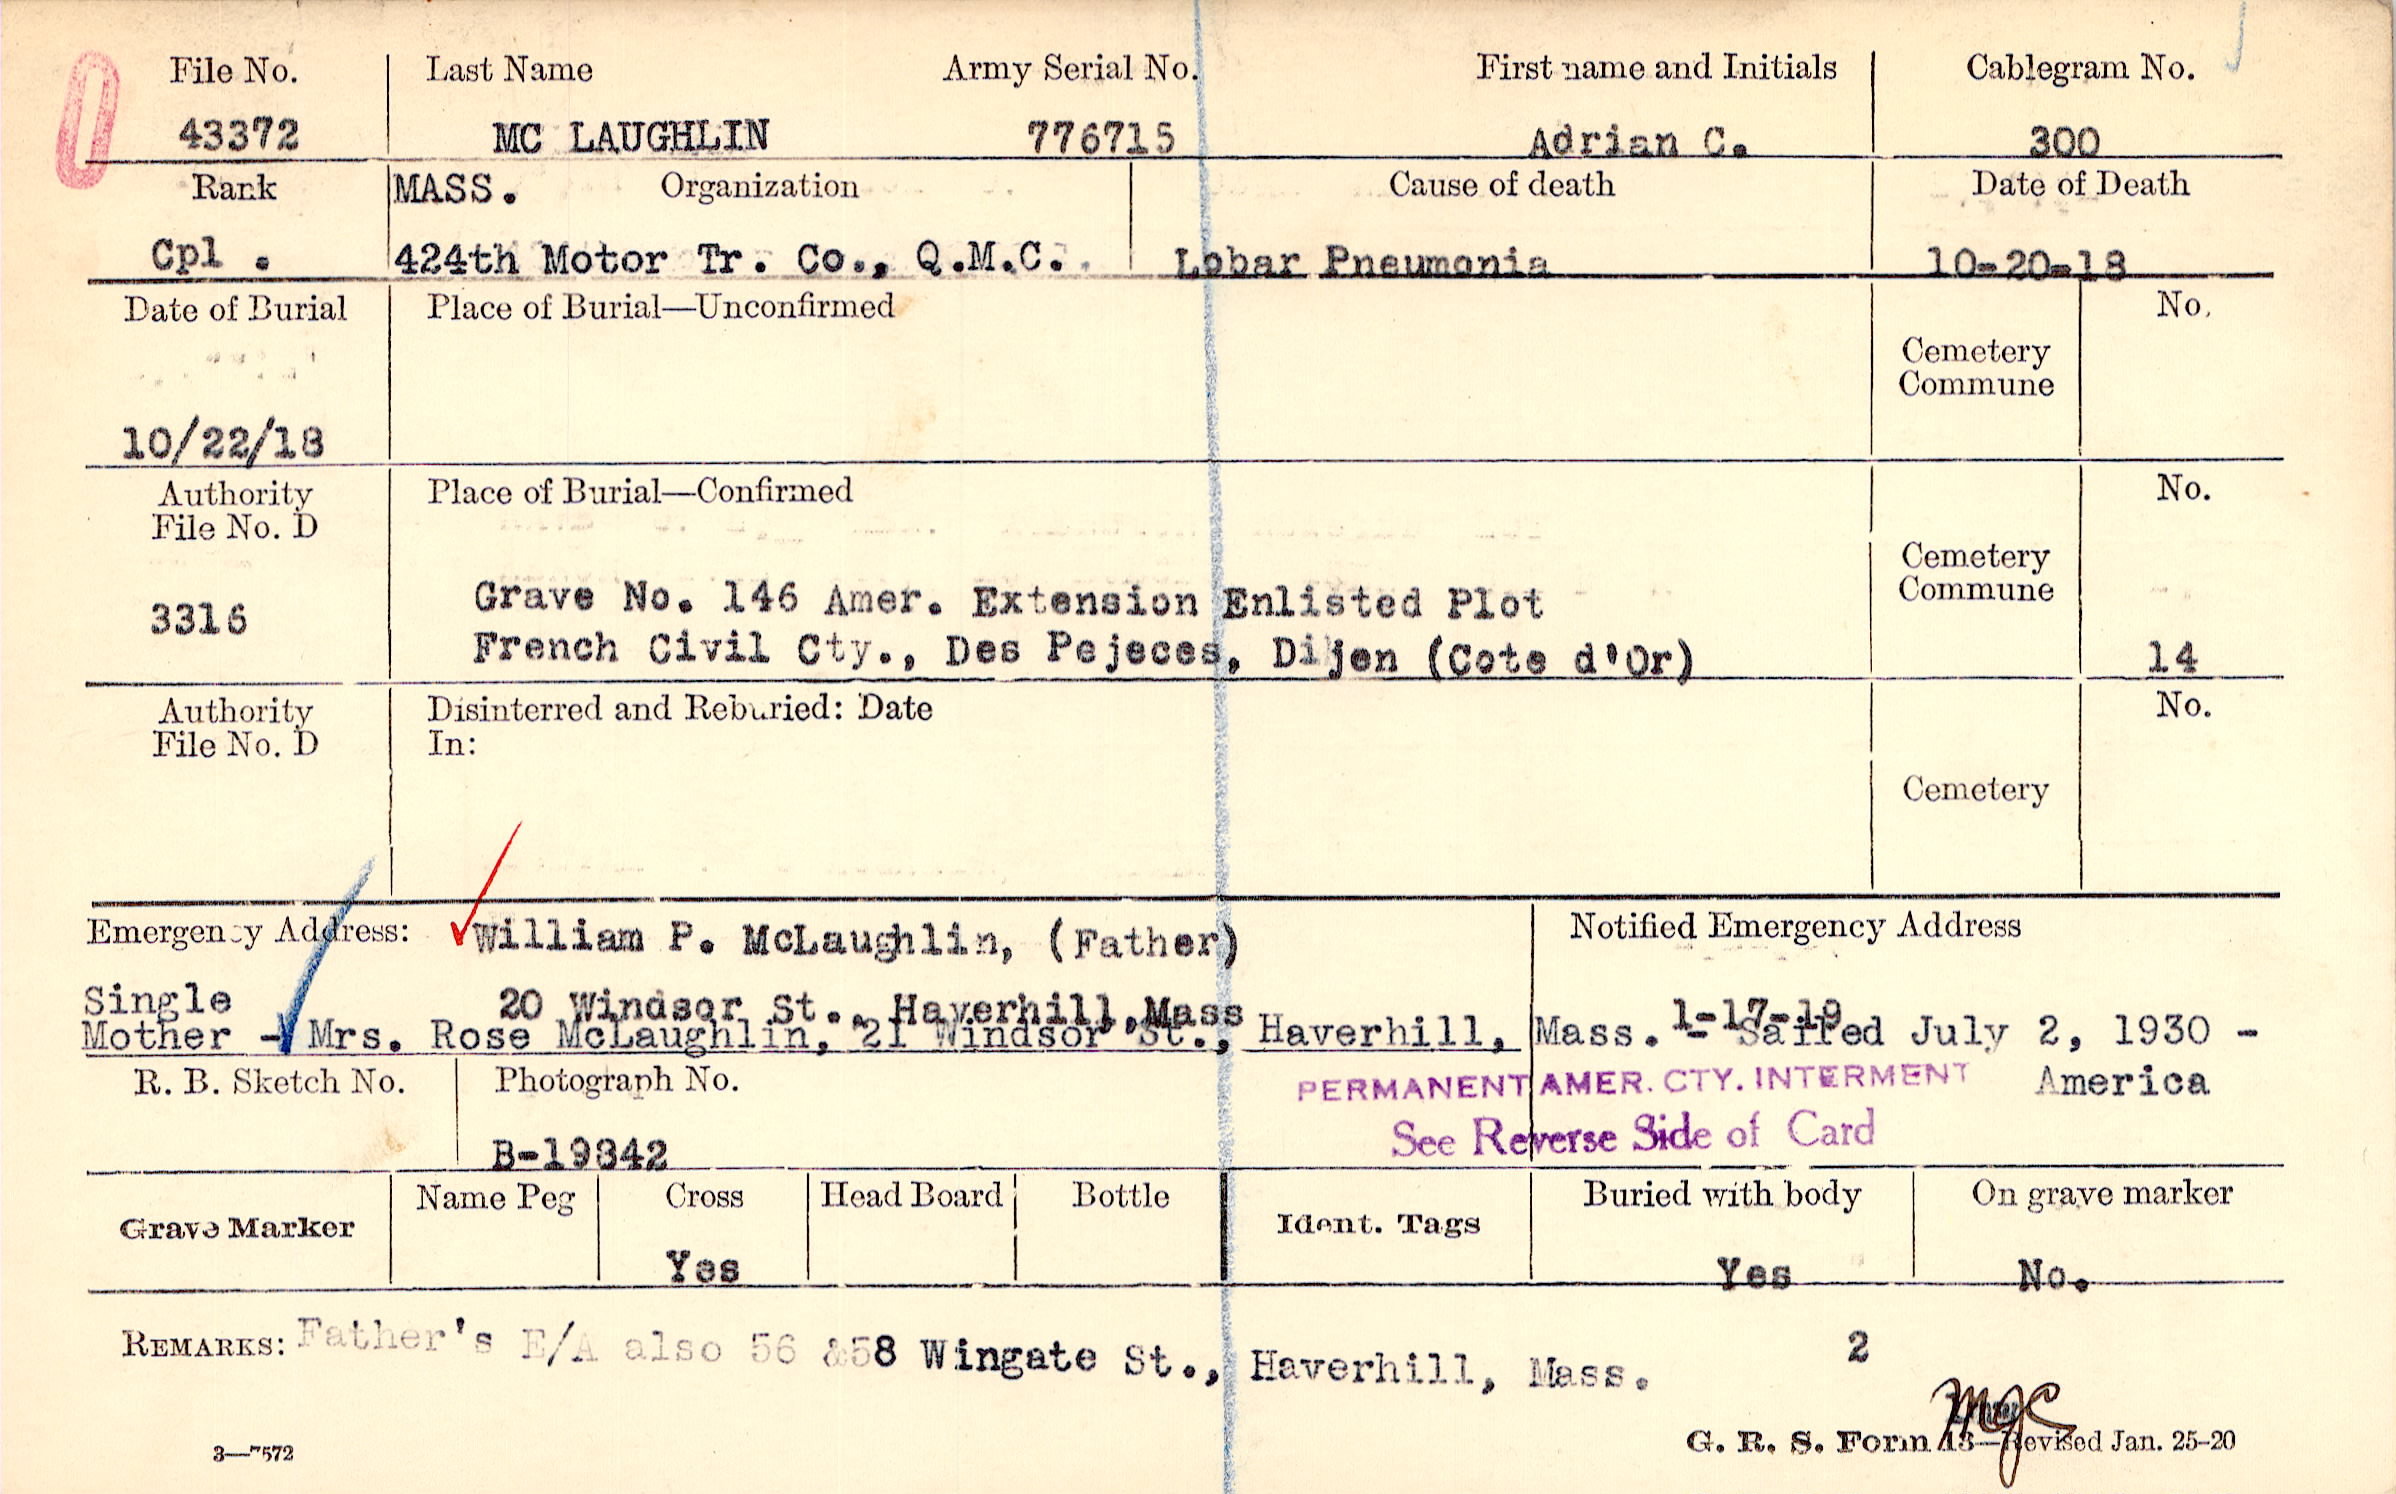 File No. Last Name Army Serial No. First name and Initials Cablegram No.
43372 MC LAUGHLIN 776715 Adrian C. 300
Rank MASS. Organization Cause of death Date of Death
Cpl . 424th Motor Tr. Co., Q.M.C. Lobar Pneumonia 10-20-18
Date of Burial Place of Burial—Unconfirmed No.
Cemetery
Commune
10/22/18
Authority Place of Burial—Confirmed No.
File No. D
Cemetery
Commune
3316 Grave No. 146 Amer. Extension Enlisted Plot
French Civil Cty., Des Pejeces, Dijen (Cote d'Or) 14
Authority Disinterred and Reburied: Date No.
File No. D In:
Cemetery
Emergency Address: William P. McLaughlin, (Father) Notified Emergency Address
Single 20 Windsor St., Haverhill, Mass 1-17-19
Mother - Mrs. Rose McLaughlin, 21 Windsor St., Haverhill, Mass. - Sailed July 2, 1930 -
R. B. Sketch No. Photograph No. PERMANENT AMER. CTY. INTERMENT America
See Reverse Side of Card
B-19842
Grave Marker Name Peg Cross Head Board Bottle Ident. Tags Buried with body On grave marker
Yes Yes No.
REMARKS: Father's E/A also 56 &58 Wingate St., Haverhill, Mass. 2
MJC
3—7572 G. R. S. Form 13—Revised Jan. 25-20